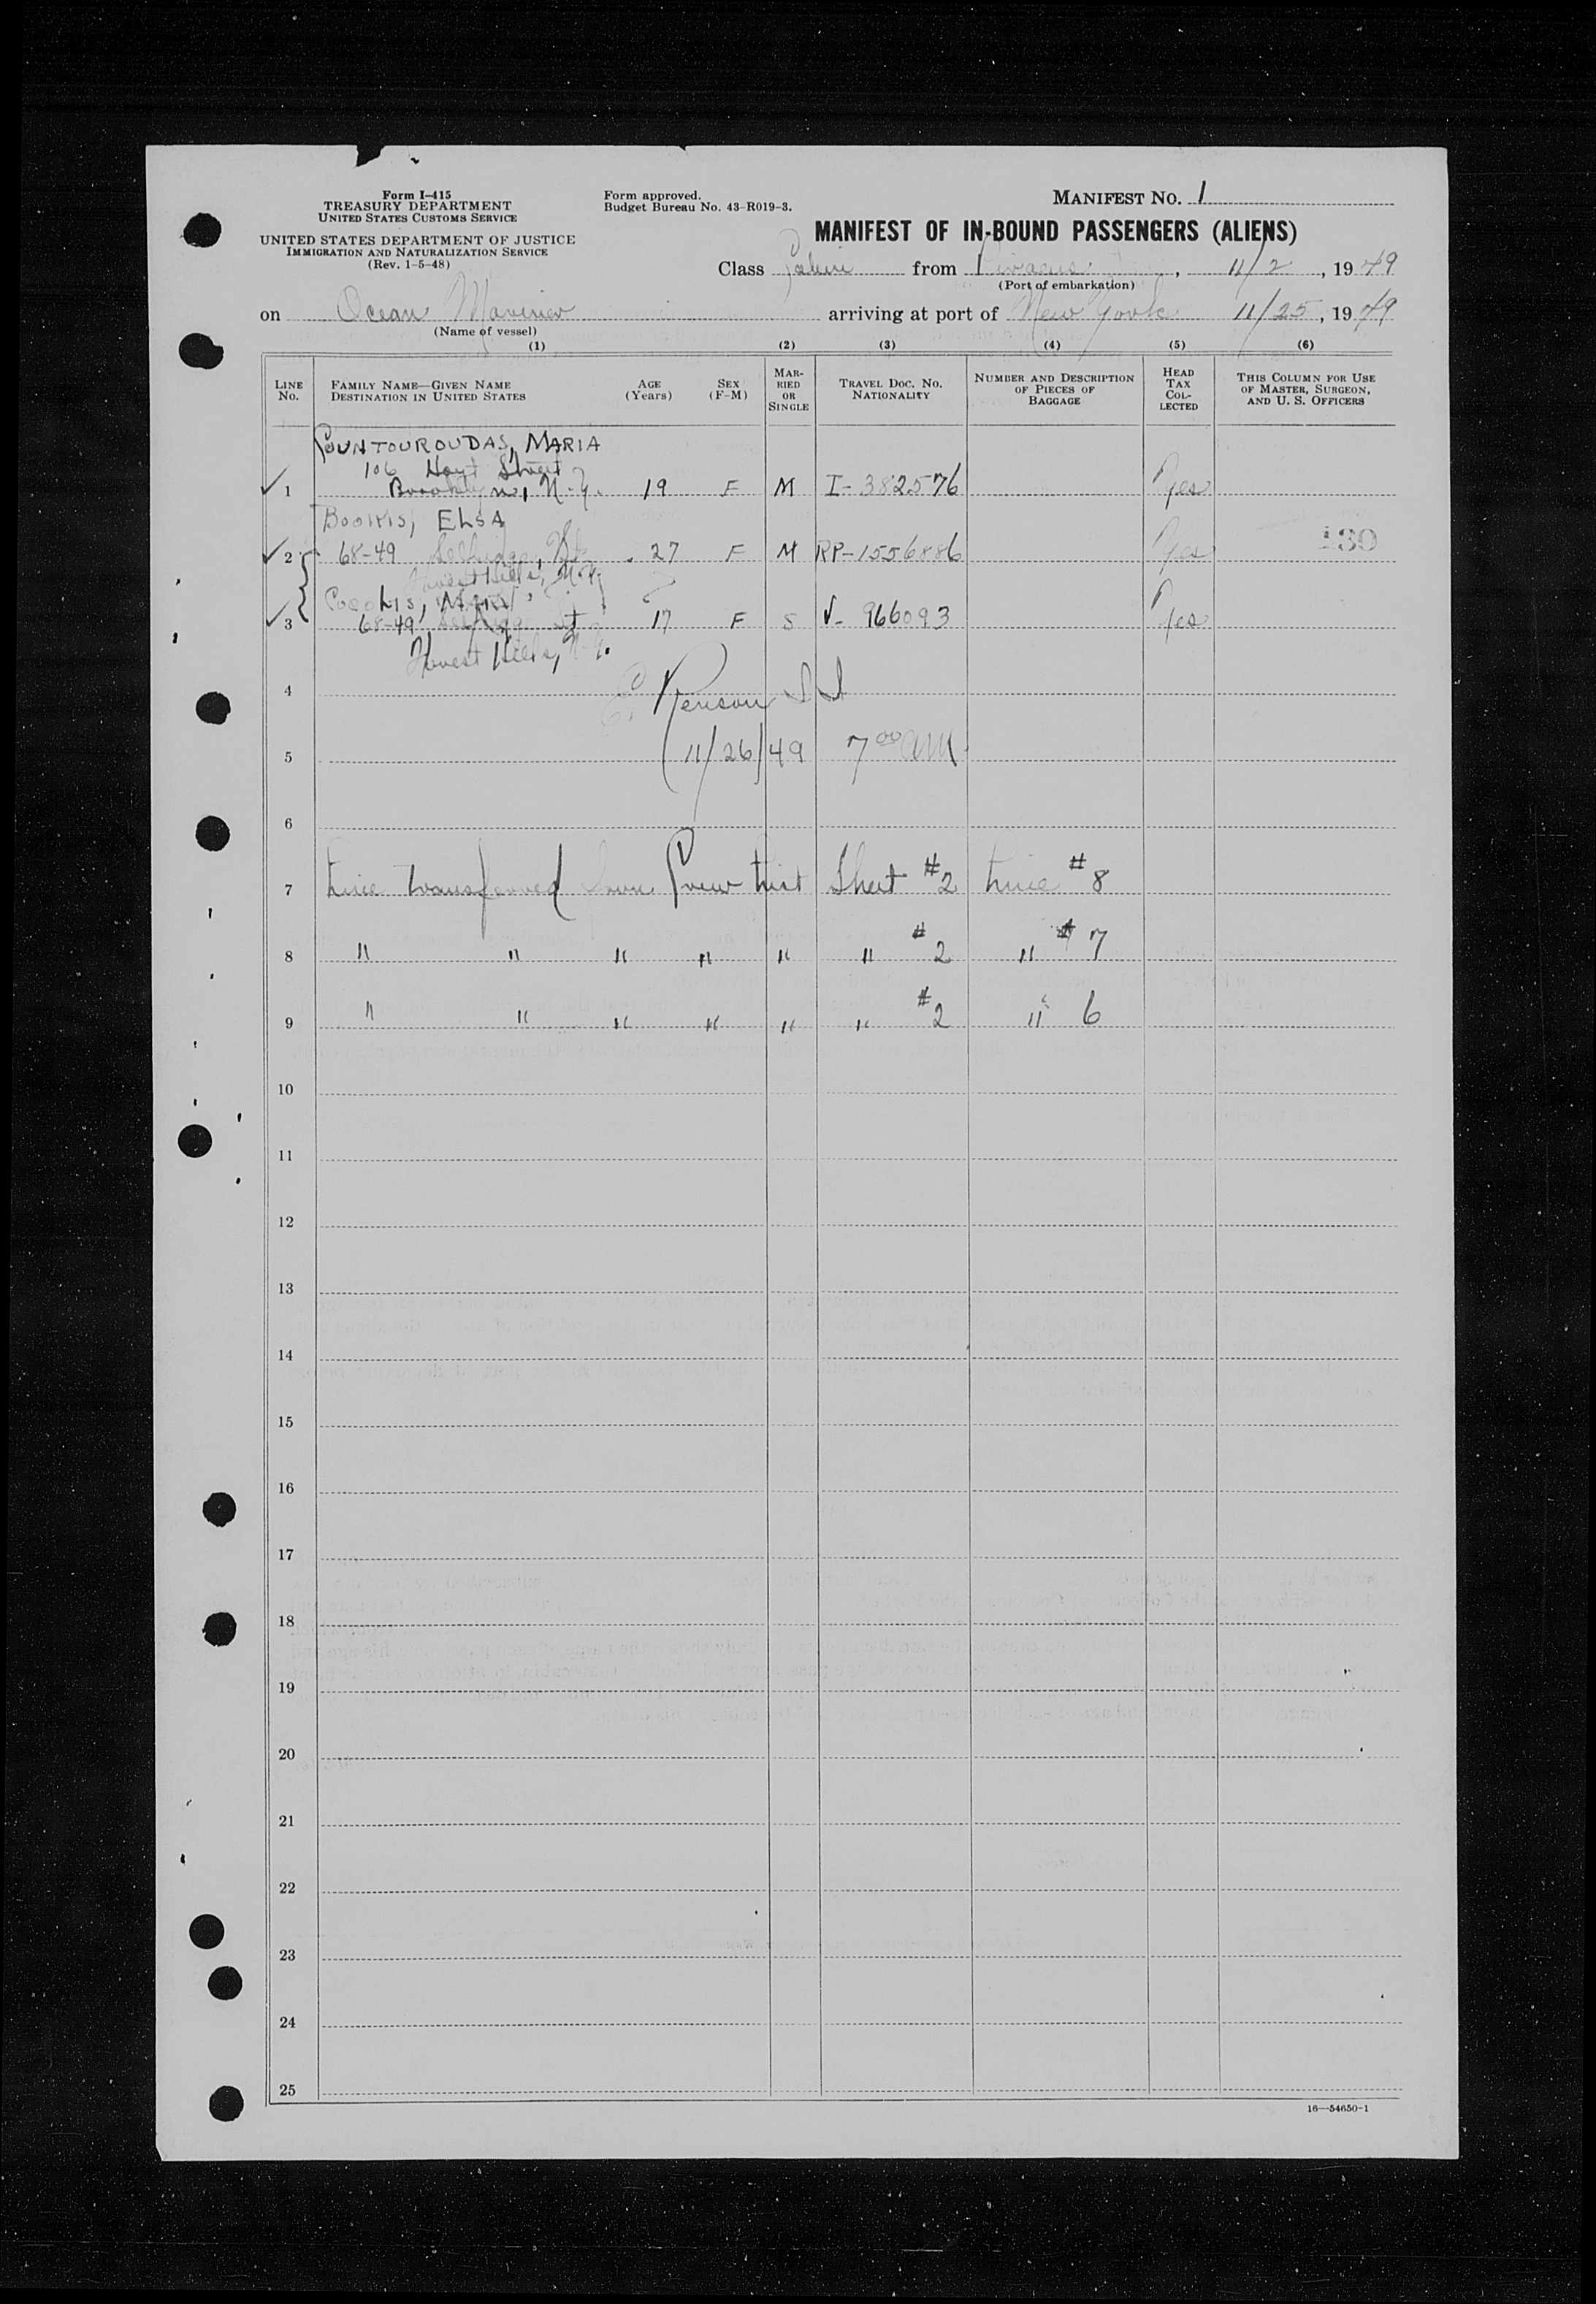 Form I-415
TREASURY DEPARTMENT
UNITED STATES CUSTOMS SERVICE
UNITED STATES DEPARTMENT OF JUSTICE
IMMIGRATION AND NATURALIZATION SERVICE
(Rev. 1-5-48)
Form approved.
Budget Bureau No. 43-R019-3.
MANIFEST No. 1
MANIFEST OF IN-BOUND PASSENGERS (ALIENS)
Class Cabin from Piraeus, 11/2, 1949
(Port of embarkation)
on Ocean Mariner arriving at port of New York 11/25, 1949
(Name of vessel)
(1) (2) (3) (4) (5) (6)
LINE No. FAMILY NAME—GIVEN NAME DESTINATION IN UNITED STATES AGE (Years) SEX (F-M) MARRIED OR SINGLE TRAVEL DOC. NO. NATIONALITY NUMBER AND DESCRIPTION OF PIECES OF BAGGAGE HEAD TAX COLLECTED THIS COLUMN FOR USE OF MASTER, SURGEON, AND U. S. OFFICERS
COUNTOUROUDAS, MARIA
106 Hoyt Street
1 Brooklyn, N.Y. 19 F M I-382576 Yes
BOOKIS, ELSA
2 68-49 St 27 F M RP-1556886 Yes 130
Forest Hills, N.Y.
3 68-49 St 17 F S V-966093 Yes
Forest Hills, N.Y.
4
11/26/49 7 00 am
5
6
7 Line Transferred from Sheet #2 Line #8
8 " " " " " " #2 " # 7
9 " " " " " " #2 " 6
10
11
12
13
14
15
16
17
18
19
20
21
22
23
24
25
16—54650-1